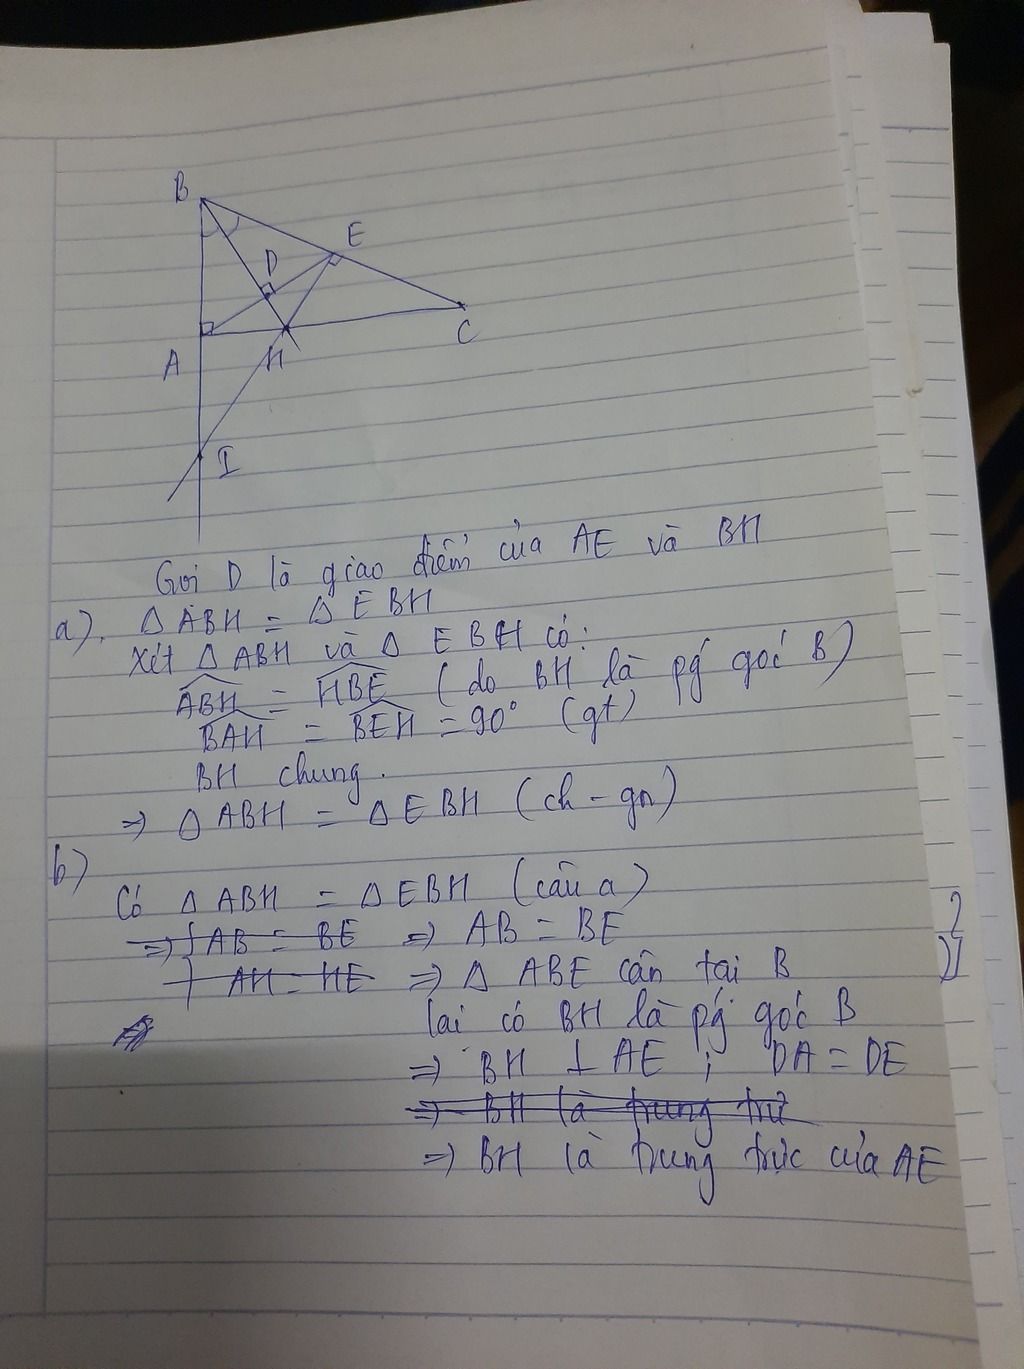 B
E
D
A
H
C
I
Gọi D là giao điểm của AE và BH
a). Δ ABH = Δ EBH
Xét Δ ABH và Δ EBH có:
ABH = HBE (do BH là pg góc B)
BAH = BEH = 90° (gt)
BH chung.
=> Δ ABH = Δ EBH (ch - gn)
b)
Có Δ ABH = Δ EBH (câu a)
=> { AB = BE => AB = BE
AH = HE => Δ ABE cân tại B
lại có BH là pg góc B
=> BH ⊥ AE ; DA = DE
=> BH là trung trự
=> BH là trung trực của AE